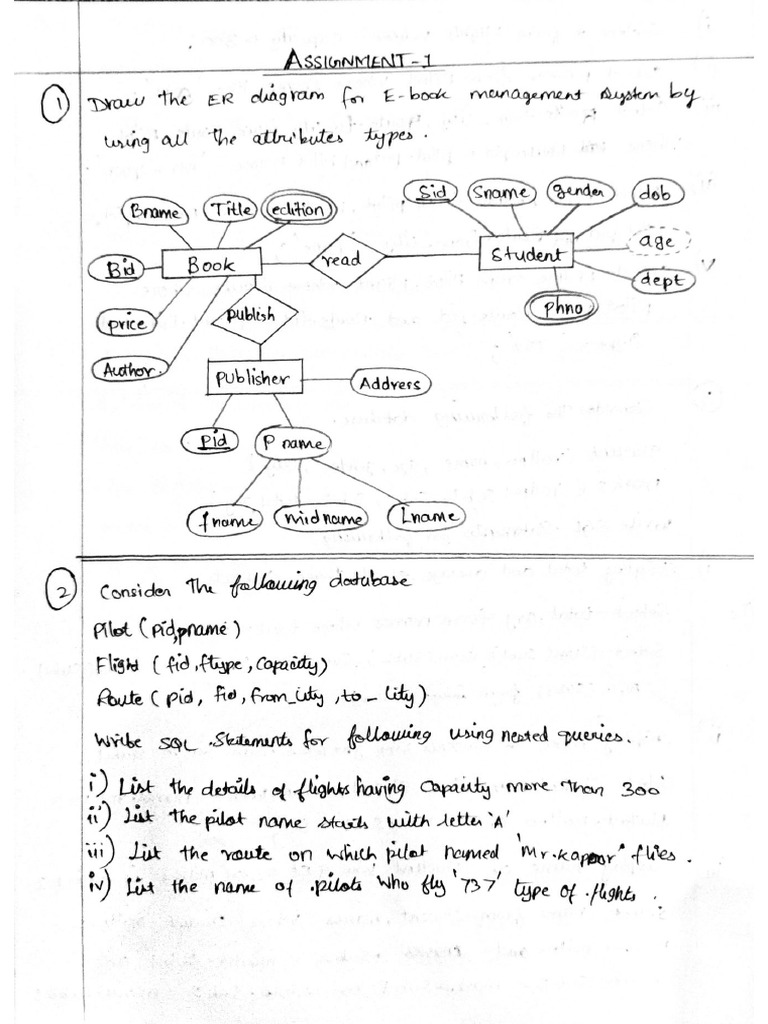 ASSIGNMENT-1
① Draw the ER diagram for E-book management system by
using all the attributes types.
Bname Title edition
Sid Sname gender dob
Bid Book read Student age
dept
price publish Phno
Author.
Publisher Address
Pid P name
fname midname Lname
② Consider the following database
Pilot (pid,pname)
Flight (fid, ftype, Capacity)
Route (pid, fid, from_city, to_city)
Write SQL Statements for following using nested queries.
i) List the details of flights having Capacity more than 300
ii) List the pilot name starts with letter 'A'
iii) List the route on which pilot named "Mr.Kapoor" flies.
iv) List the name of pilots who fly '737' type of flights.